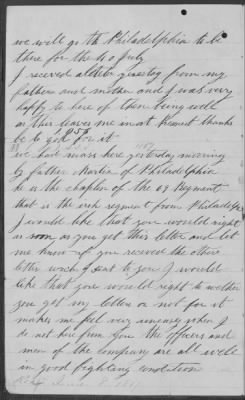 we will go to Philadelphia to be
there for the 4 of July
I receved a letter yesterday from my
father and mother and I was very
happy to here of them being well
as this leaves me in at Present thanks
be to god for it
we had mass here yesterday morning
by father Martin of Philadelphia
he is the chaplen of the 69 Regment
that is the irish regment from Philadelphia
I would like that you would right
as soon as you get this letter and let
me know if you receved the other
letter wich I sent to you I would
like that you would right to wether
you get my letters or not for it
makes me feel very uneasey when I
do not here from you the officers and
men of the company are all well
in good fighting condition